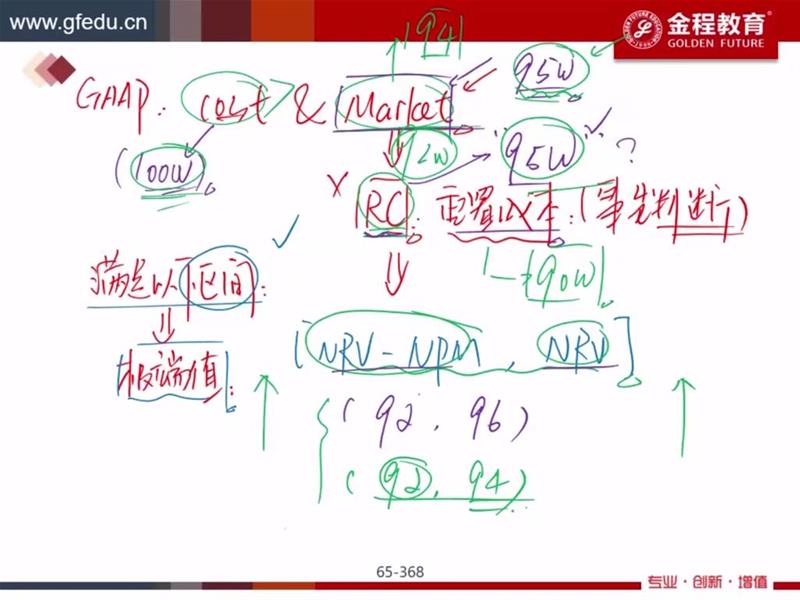 www.gfedu.cn
金程教育
GOLDEN FUTURE
94
95W
GAAP: cost & Market
(100W)
92W
"95W" ?
× RC: 重置成本: (事先判断)
满足以下区间:
90W
极端值:
[NRV-NPM, NRV]
(92, 96)
(92, 94)
65-368
专业·创新·增值